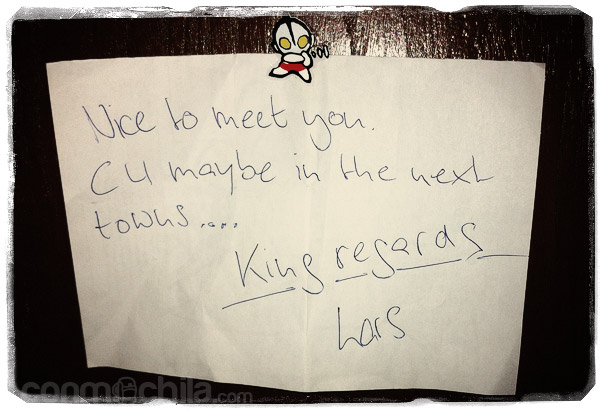 Nice to meet you.
CU maybe in the next
towns....
King regards
Lars
conmochila.com